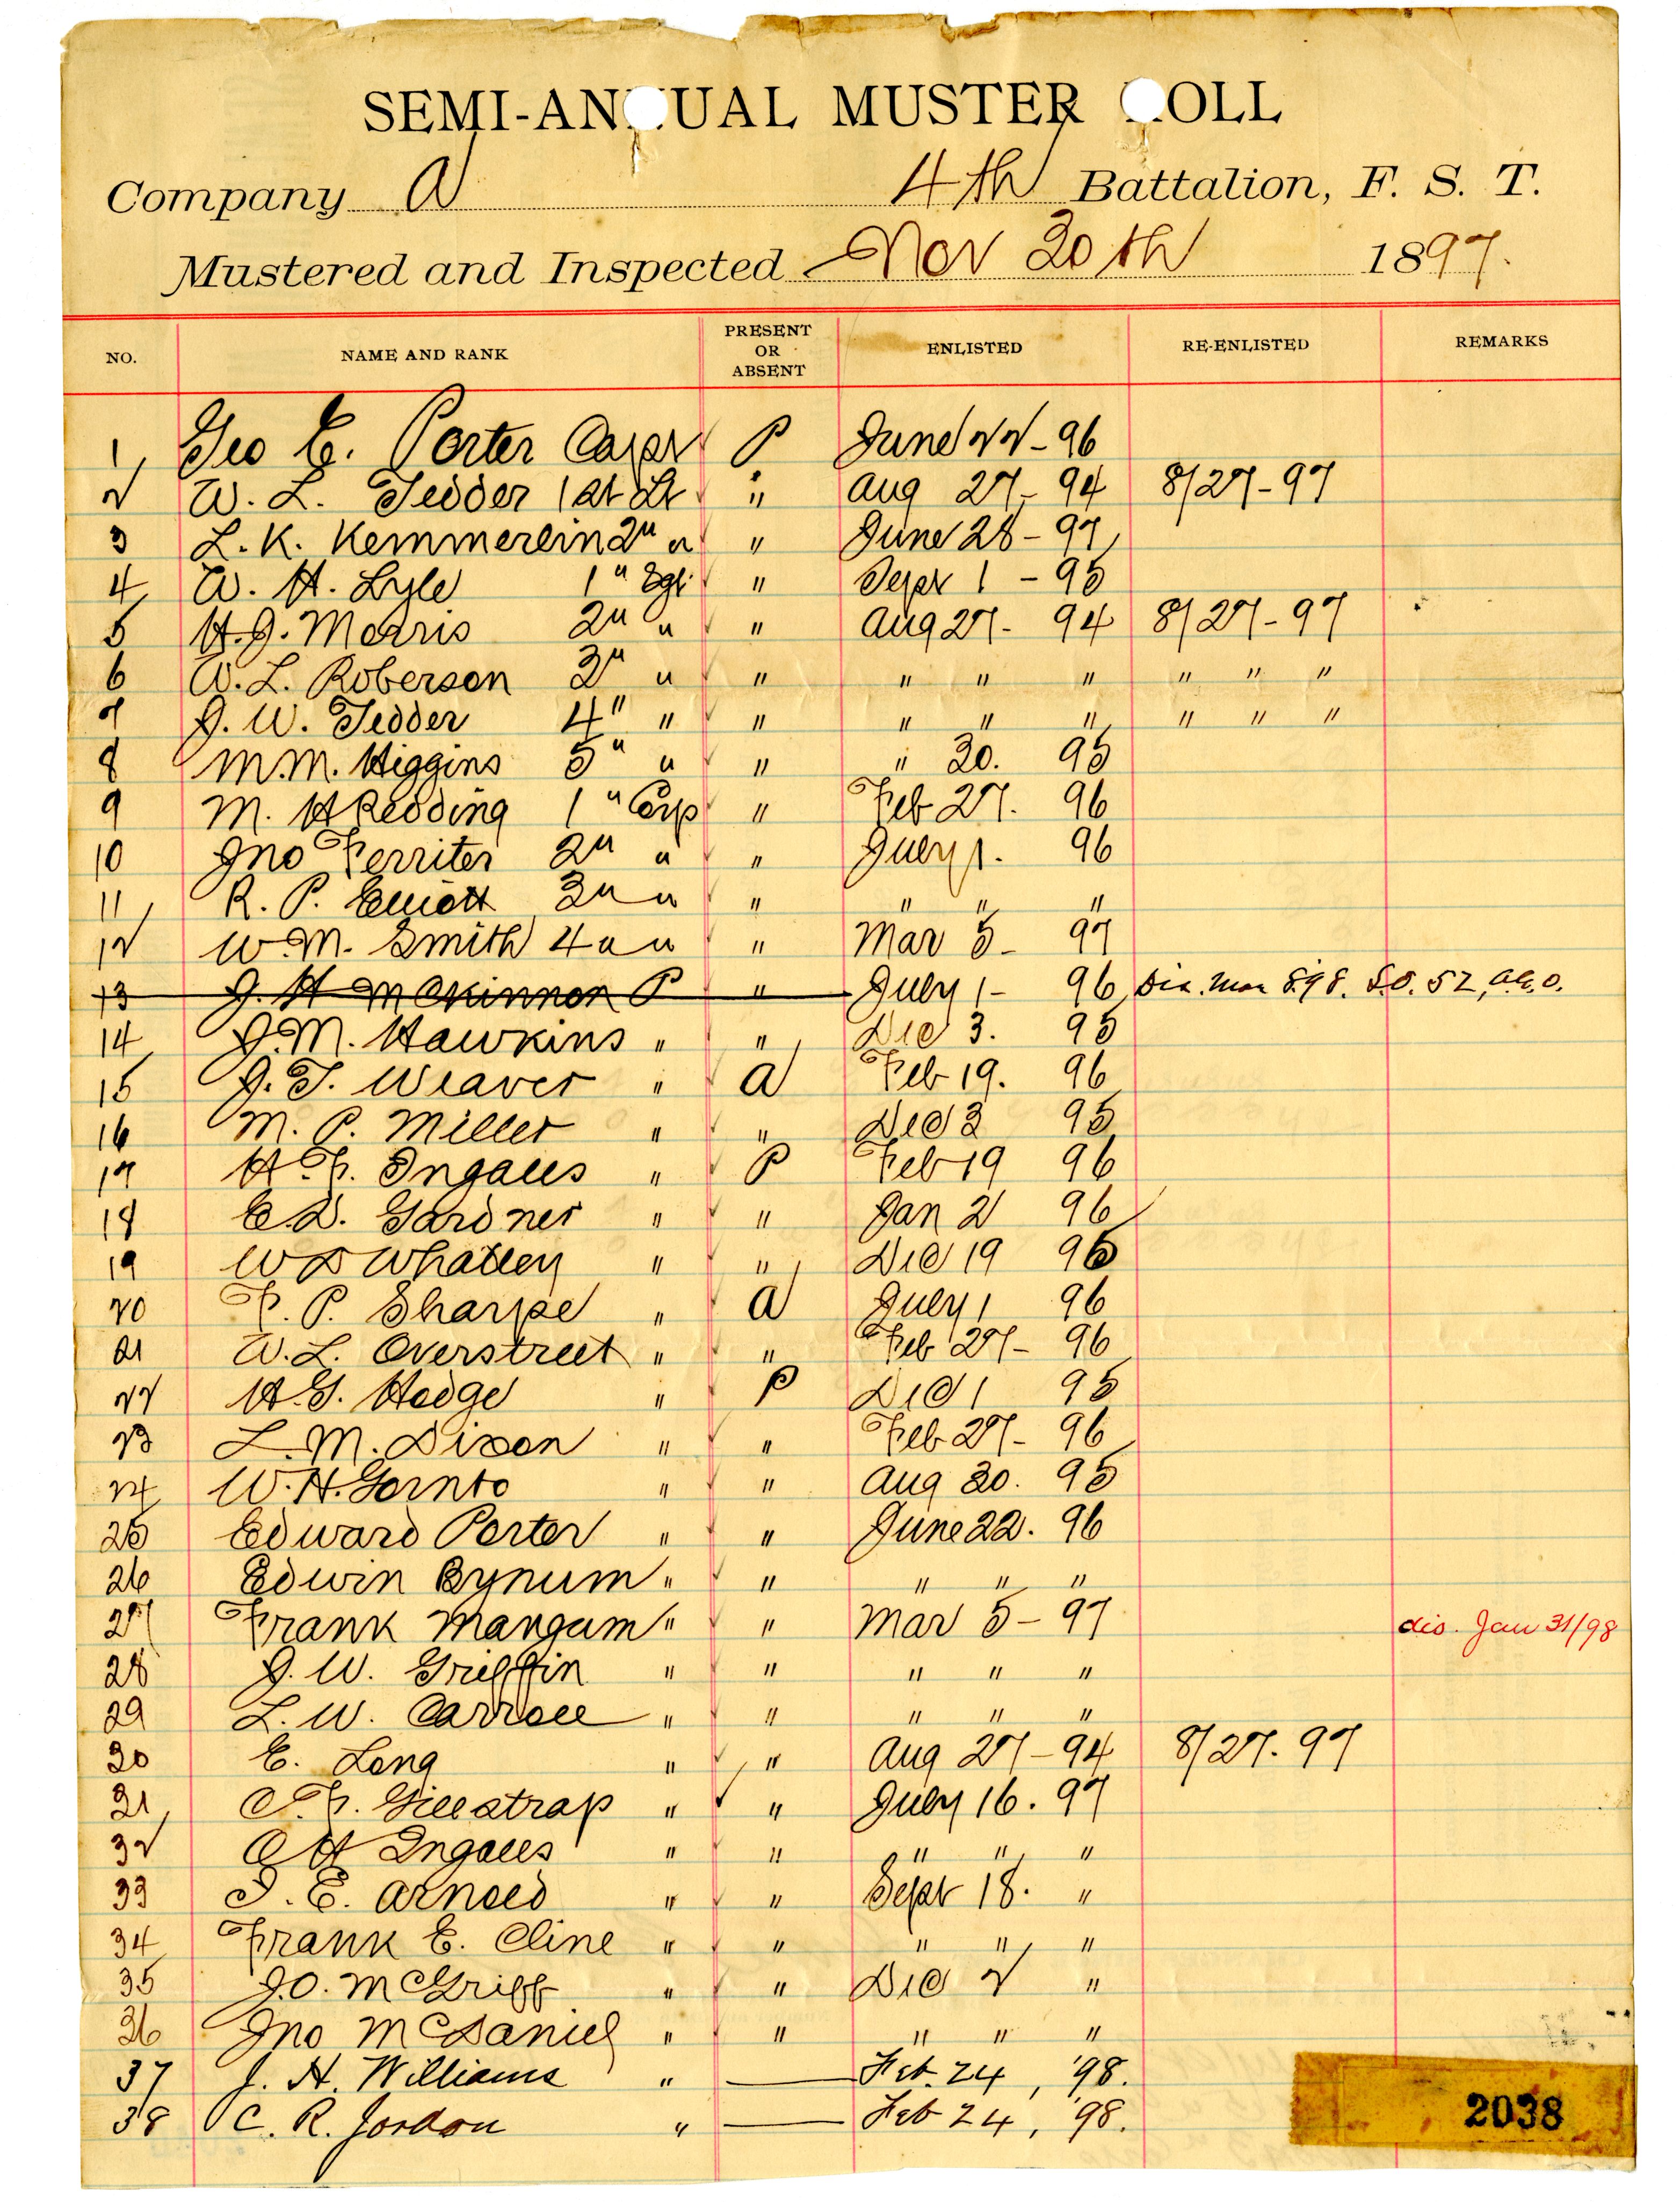 SEMI-ANNUAL MUSTER ROLL
Company A 4th Battalion, F. S. T.
Mustered and Inspected Nov 30th 1897.
NO. NAME AND RANK PRESENT OR ABSENT ENLISTED RE-ENLISTED REMARKS
1 Geo E. Porter Capt P June 22-96
2 W. L. Tedder 1st Lt " Aug 27-94 8/27-97
3 L. K. Kemmerlin 2" " " June 28-97
4 W. H. Lyle 1" Sgt " Sept 1-95
5 H. J. Morris 2" " " Aug 27-94 8/27-97
6 W. L. Roberson 3" " " " " " " " "
7 J. W. Tedder 4" " " " " " " " "
8 M. M. Higgins 5" " " " 30. 95
9 M. H Redding 1" Corp " Feb 27. 96
10 Jno Ferriter 2" " " July 1. 96
11 R. P. Elliott 3" " " " " "
12 W. M. Smith 4" " " Mar 5-97
13 J. H McKinnon P " July 1-96 Dis. Mar 8.98. S.O. 52, A.G.O.
14 J. M. Hawkins " " Dec 3. 95
15 J. T. Weaver " A Feb 19. 96
16 M. P. Miller " " Dec 3 95
17 H. F. Ingalls " P Feb 19 96
18 E. D. Gardner " " Jan 2 96
19 W D Whatley " " Dec 19 96
20 F. P. Sharpe " A July 1 96
21 W. L. Overstreet " " Feb 27-96
22 H. G. Hodge " P Dec 1 95
23 L. M. Dixon " " Feb 27-96
24 W. H. Gornto " " Aug 30. 95
25 Edward Porter " " June 22. 96
26 Edwin Bynum " " " " "
27 Frank Mangum " " Mar 5-97 dis. Jan 31/98
28 J. W. Griffin " " " " "
29 L. W. Carroll " " " " "
30 E. Long " " Aug 27-94 8/27. 97
31 C. F. Gillstrap " " July 16. 97
32 O H Ingalls " " " " "
33 I. E. Arnold " " Sept 18. "
34 Frank E. Cline " " " " "
35 J. O. McGriff " " Dec 2 "
36 Jno McDaniel " " " " "
37 J. H. Williams " — Feb. 24, '98.
38 C. R. Jordon " — Feb 24, '98.
2038